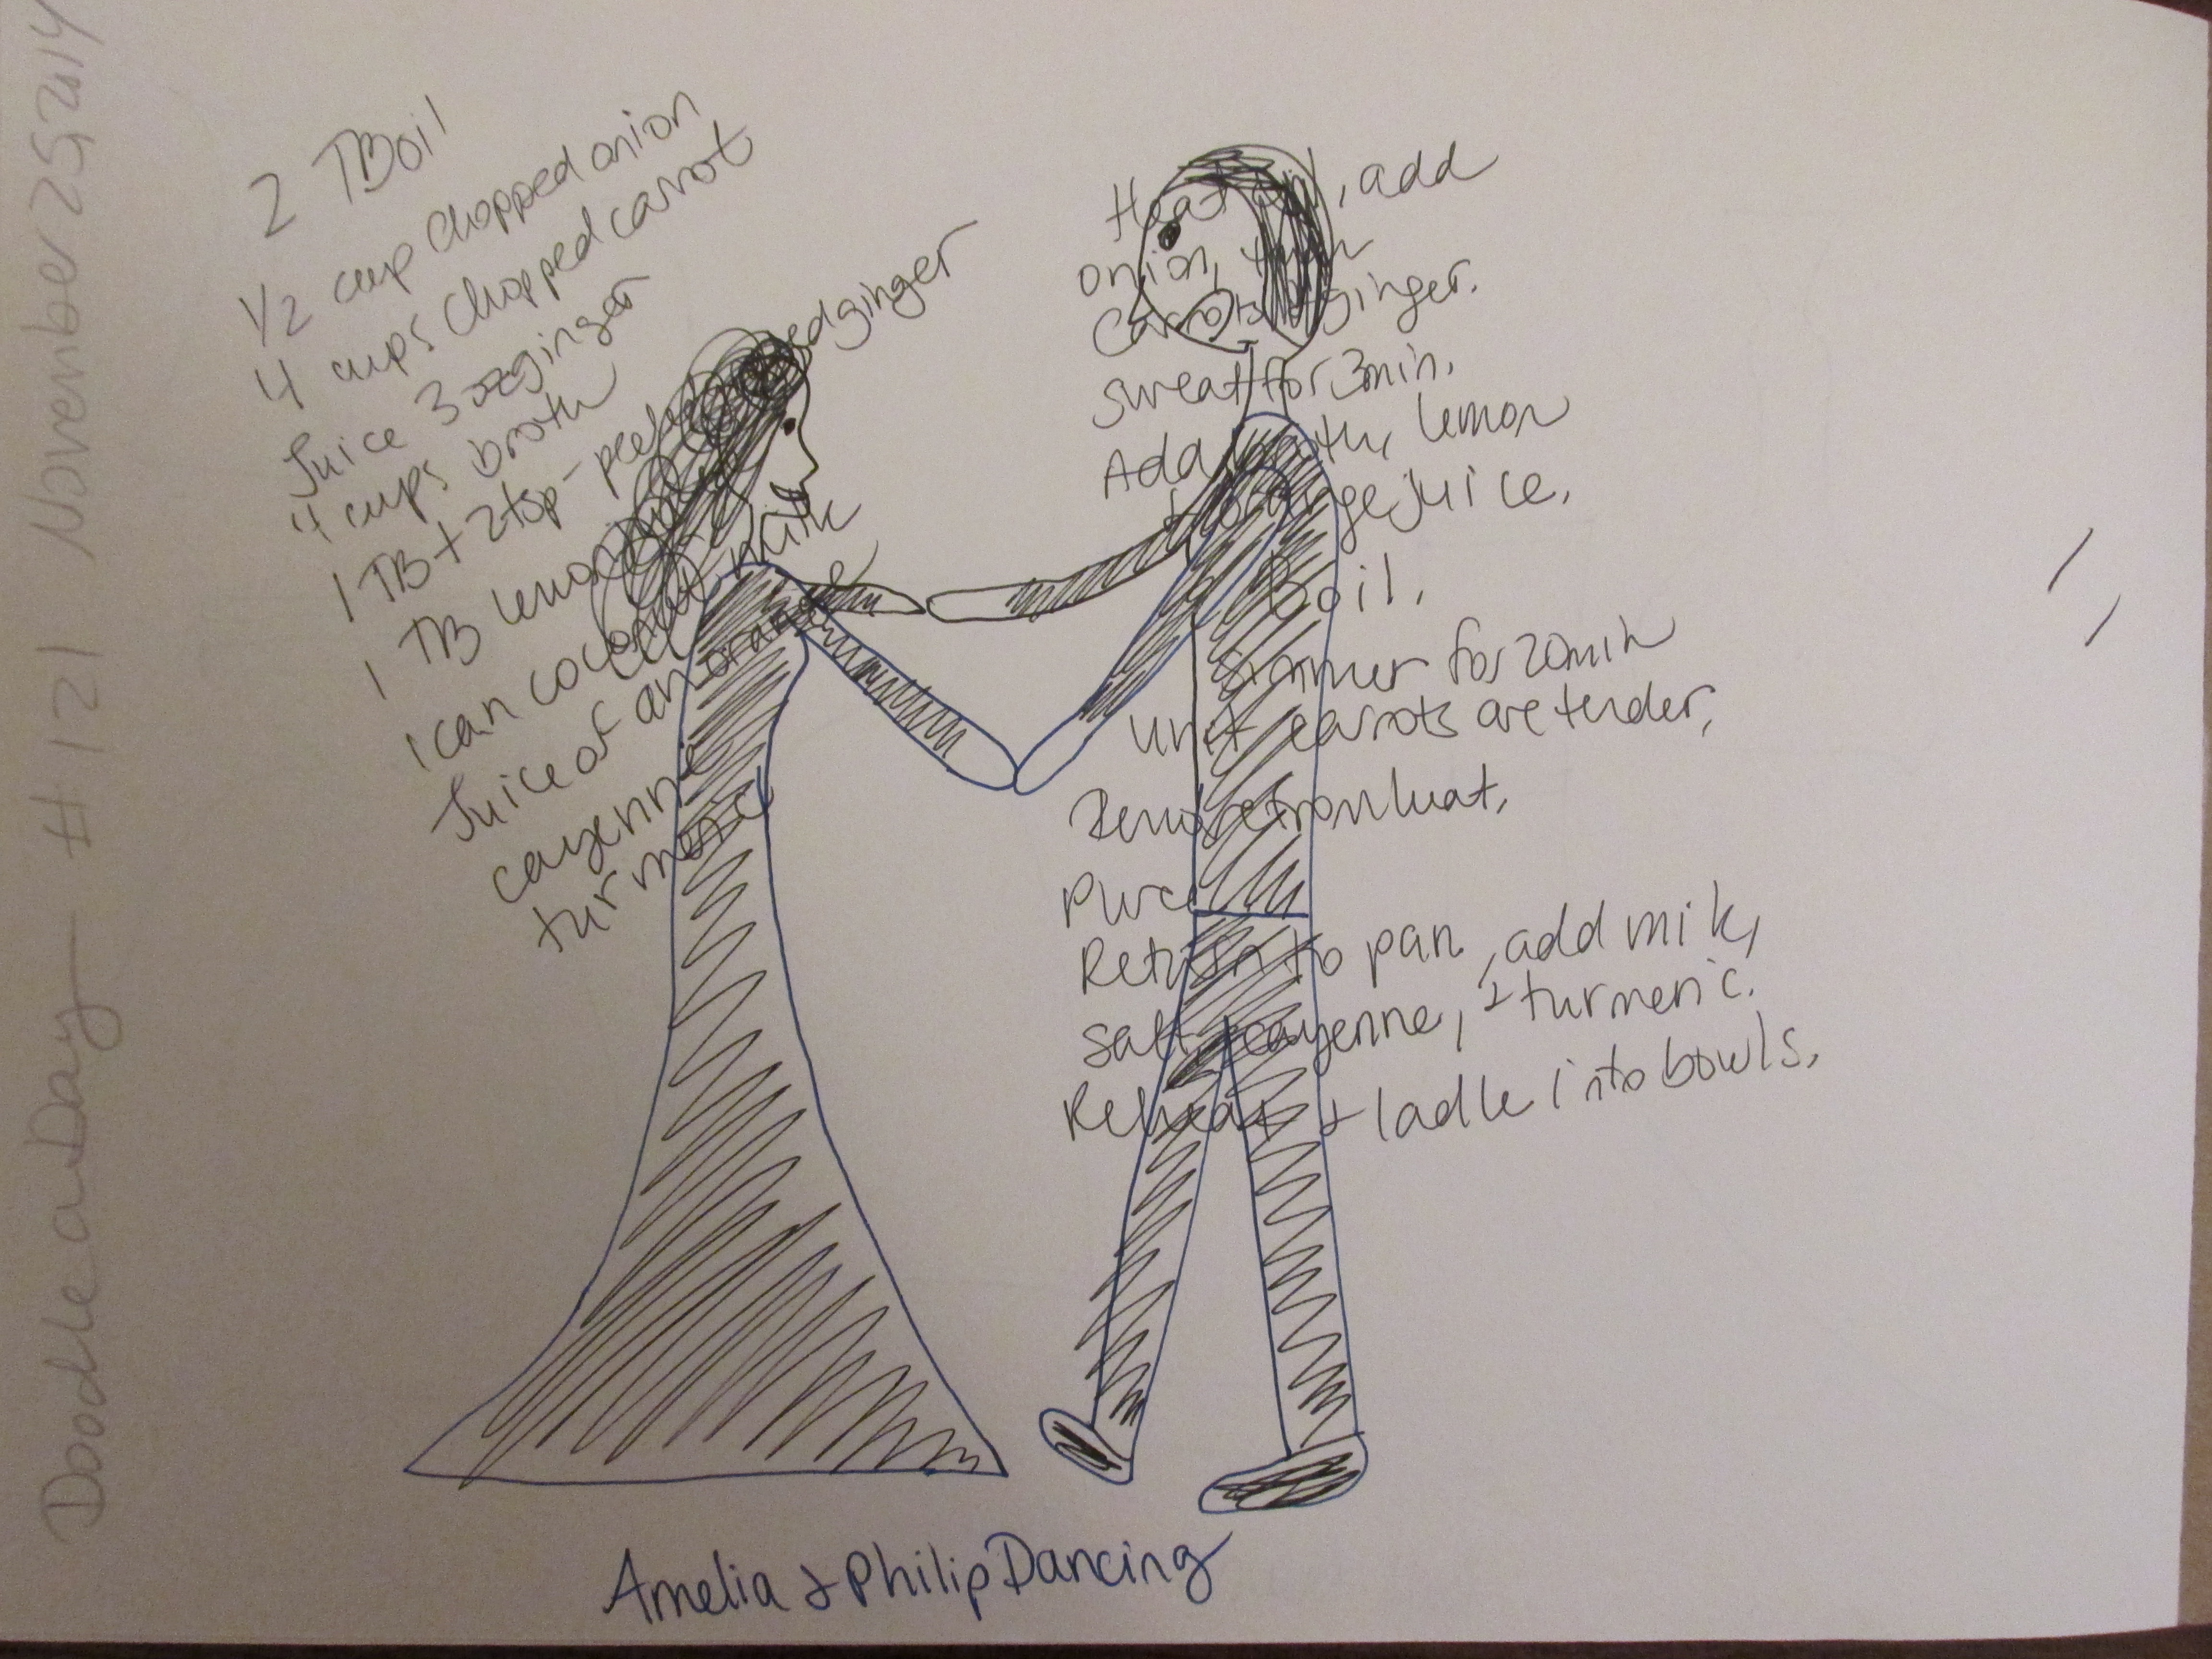 Doodle a Day - #121 November 25, 2014
2 TB oil
1/2 cup chopped onion
4 cups chopped carrot
Juice 3 oz ginger
4 cups broth
1 TB + 2 tsp - peeled ginger
1 TB lemon
1 can coconut milk
Juice of an orange
cayenne
turmeric
Heat oil, add
onion, then
carrots + ginger.
Sweat for 3 min.
Add broth, lemon
+ orange juice.
Boil.
Simmer for 20 min
unit carrots are tender.
Remove from heat.
Puree
Return to pan, add mik,
salt, cayenne, + turmeric.
Reheat + ladle into bowls.
Amelia + Philip Dancing